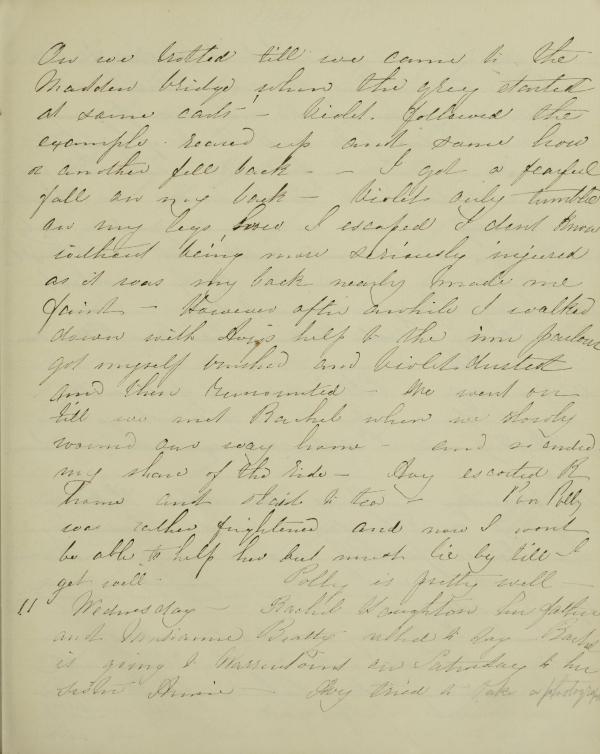 On we trotted till we came to the
Madden bridge, when the grey started
at some carts - Violet followed the
example reared up and some how
or another fell back - - I got a fearful
fall on my back - Violet only tumbled
on my legs, how I escaped I dont know
without being more seriously injured
as it was my back nearly made me
faint - However after awhile I walked
down with help to the inn parlour
got myself brushed and Violet dusted
and then remounted - We went on
till we met Rachel when we slowly
wound our way home - and so ended
my share of the ride - escorted R
home and staid to tea - Poor Polly
was rather frightened and now I wont
be able to help her but must lie by till I
get well - Polly is pretty well -
11 Wednesday - Rachel Haughton her father
and Beatty called to day Rachel
is going to on Saturday to her
sister Annie - tried to take a photograph